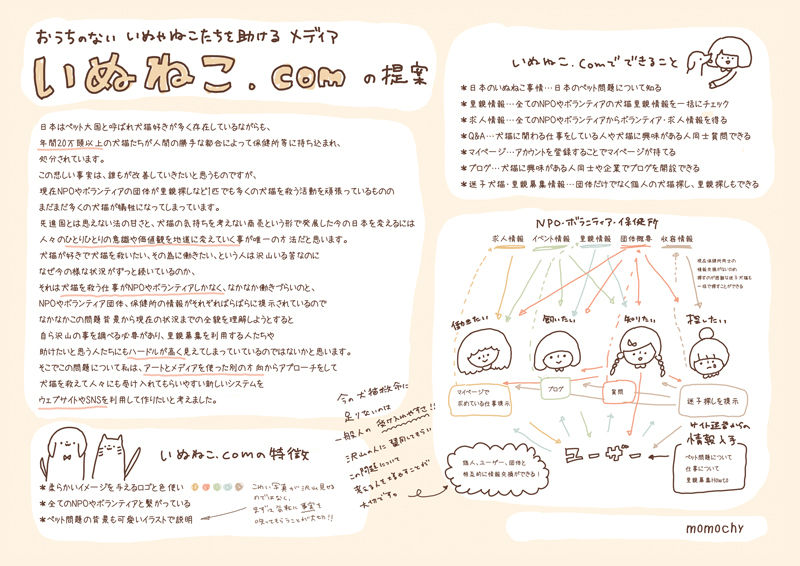 おうちのない いぬやねこたちを助ける メディア
いぬねこ.comの提案
日本はペット大国と呼ばれ犬猫好きが多く存在しているながらも、
年間20万頭以上の犬猫たちが人間の勝手な都合によって保健所等に持ち込まれ、
処分されています。
この悲しい事実は、誰もが改善していきたいと思うものですが、
現在NPOやボランティアの団体が里親探しなど1匹でも多くの犬猫を救う活動を頑張っているものの
まだまだ多くの犬猫が犠牲になってしまっています。
先進国とは思えない法の甘さと、犬猫の気持ちを考えない商売という形で発展した今の日本を変えるには
人々のひとりひとりの意識や価値観を地道に変えていく事が唯一の方法だと思います。
犬猫が好きで犬猫を救いたい、その為に働きたい、という人は沢山いる筈なのに
なぜ今の様な状況がずっと続いているのか、
それは犬猫を救う仕事がNPOやボランティアしかなく、なかなか働きづらいのと、
NPOやボランティア団体、保健所の情報がそれぞればらばらに提示されているので
なかなかこの問題背景から現在の状況までの全貌を理解しようとすると
自ら沢山の事を調べる必要があり、里親募集を利用する人たちや
助けたいと思う人たちにもハードルが高く見えてしまっているのではないかと思います。
そこでこの問題について私は、アートとメディアを使った別の方向からアプローチをして
犬猫を救えて人々にも受け入れてもらいやすい新しいシステムを
ウェブサイトやSNSを利用して作りたいと考えました。
いぬねこ.comの特徴
*柔らかいイメージを与えるロゴと色使い
*全てのNPOやボランティアと繋がっている
*ペット問題の背景も可愛いイラストで説明
こわい写真が沢山見せ
るのではなく、
まずは気軽に事実を
知ってもらうことが大切!!
今の犬猫救命に
足りないのは
一般人の受け入れやすさ!!
沢山の人に賛同してもらい
この問題について
考える人を増やすことが
大切です。
いぬねこ.comでできること
*日本のいぬねこ事情…日本のペット問題について知る
*里親情報…全てのNPOやボランティアの犬猫里親情報を一括にチェック
*求人情報…全てのNPOやボランティアからボランティア・求人情報を得る
*Q&A…犬猫に関わる仕事をしている人や犬猫に興味がある人同士質問できる
*マイページ…アカウントを登録することでマイページが持てる
*ブログ…犬猫に興味がある人同士や企業でブログを開設できる
*迷子犬猫・里親募集情報…団体だけでなく個人の犬猫探し、里親探しもできる
NPO・ボランティア・保健所
求人情報 イベント情報 里親情報 団体概要 収容情報
現在保健所同士の
情報交換がないため
探すのが困難な迷子犬猫も
一括で探すことができる
働きたい 飼いたい 知りたい 探したい
マイページで
求めている仕事提示
ブログ
質問
迷子探しを提示
個人、ユーザー、団体と
相互的に情報交換ができる!
ユーザー
サイト運営からの
情報入手
ペット問題について
仕事について
里親募集Howto
momochy